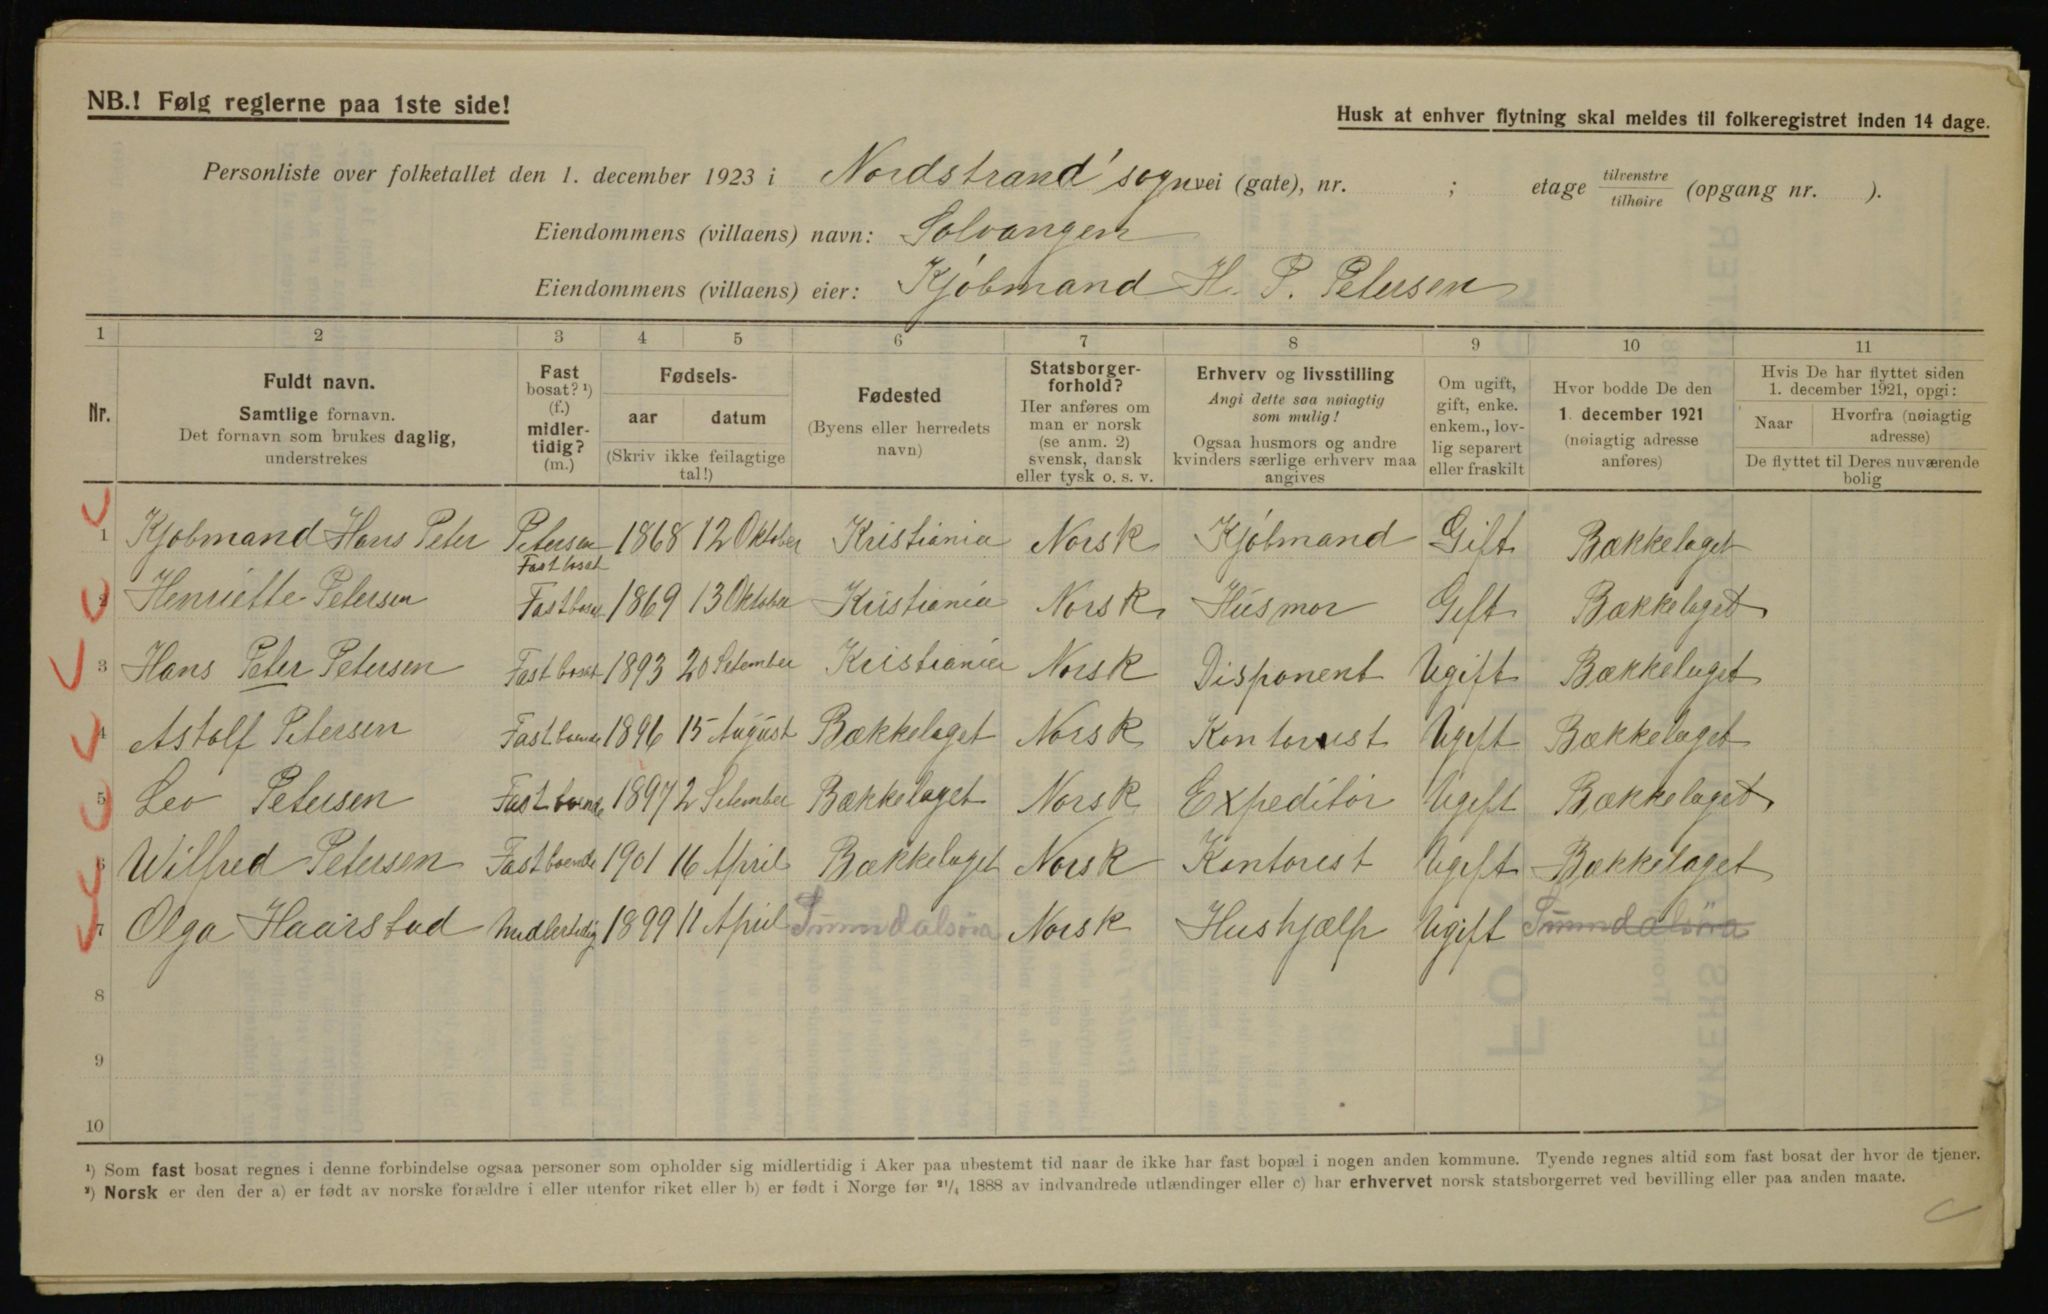 NB.! Følg reglerne paa 1ste side!
Husk at enhver flytning skal meldes til folkeregistret inden 14 dage.
Personliste over folketallet den 1. december 1923 i Nordstrand' sogn vei (gate), nr. ; etage tilvenstre tilhøire (opgang nr. ).
Eiendommens (villaens) navn: Solvangen
Eiendommens (villaens) eier: Kjøbmand H. P. Petersen
1 2 3 4 5 6 7 8 9 10 11
Nr.
Fuldt navn.
Samtlige fornavn.
Det fornavn som brukes daglig,
understrekes
Fast
bosat? ¹)
(f.)
midler-
tidig?
(m.)
Fødsels-
aar datum
(Skriv ikke feilagtige
tal!)
Fødested
(Byens eller herredets
navn)
Statsborger-
forhold?
Her anføres om
man er norsk
(se anm. 2)
svensk, dansk
eller tysk o. s. v.
Erhverv og livsstilling
Angi dette saa nøiagtig
som mulig!
Ogsaa husmors og andre
kvinders særlige erhverv maa
angives
Om ugift,
gift, enke.
enkem., lov-
lig separert
eller fraskilt
Hvor bodde De den
1. december 1921
(nøiagtig adresse
anføres)
Hvis De har flyttet siden
1. december 1921, opgi:
Naar Hvorfra (nøiagtig
adresse)
De flyttet til Deres nuværende
bolig
1 Kjøbmand Hans Peter Petersen 1868 12 Oktober Kristiania Norsk Kjøbmand Gift Bækkelaget
Fast bosat
2 Henriette Petersen Fastbosat 1869 13 Oktober Kristiania Norsk Husmor Gift Bækkelaget
3 Hans Peter Petersen Fast bosat 1893 20 Setember Kristiania Norsk Disponent Ugift Bækkelaget
4 Astolf Petersen Fast boende 1896 15 August Bækkelaget Norsk Kontorist Ugift Bækkelaget
5 Leo Petersen Fast boende 1897 2 Setember Bækkelaget Norsk Expeditør Ugift Bækkelaget
6 Wilfred Petersen Fast boende 1901 16 April Bækkelaget Norsk Kontorist Ugift Bækkelaget
7 Olga Haarstad Midlertidig 1899 11 April Sunndalsöra Norsk Hushjælp Ugift Sunndalsöra
8
9
10
¹) Som fast bosat regnes i denne forbindelse ogsaa personer som opholder sig midlertidig i Aker paa ubestemt tid naar de ikke har fast bopæl i nogen anden kommune. Tyende regnes altid som fast bosat der hvor de tjener.
²) Norsk er den der a) er født av norske forældre i eller utenfor riket eller b) er født i Norge før ²¹/₄ 1888 av indvandrede utlændinger eller c) har erhvervet norsk statsborgerret ved bevilling eller paa anden maate.